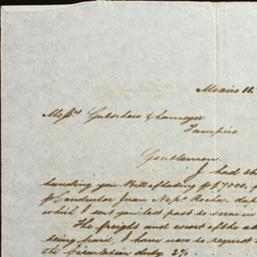 Mexico 11.
Messrs.
Tampico
Gentlemen
I had th
handing you Bill of lading p $9,000,
p Conductor Juan Nepo. Rocha,
which I sent you last post to serve in
The freight and escort of the a
being paid, I have now to request
the circulation duty 2%.